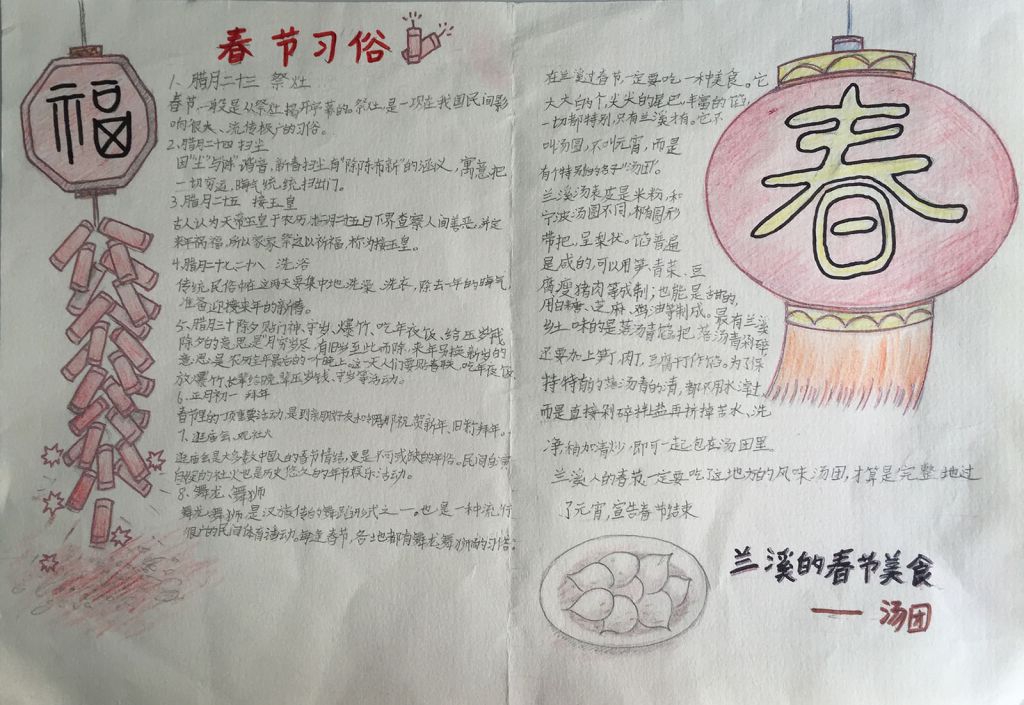 福
春节习俗
1、腊月二十三 祭灶
春节一般是从祭灶揭开序幕的。祭灶是一项在我国民间影
响很大、流传极广的习俗。
2、腊月二十四 扫尘
因"尘"与"陈"谐音,新春扫尘有"除陈布新"的涵义,寓意把
一切穷运,晦气统统扫出门。
3、腊月二十五 接玉皇
古人认为天帝玉皇于农历腊月廿五日下界查察人间善恶,并定
来年祸福,所以家家祭之以祈福,称为接玉皇。
4、腊月二十七二十八 洗浴
传统民俗中在这两天要集中地洗澡、洗衣,除去一年的晦气
准备迎接来年的新春。
5、腊月三十除夕贴门神、守岁、爆竹、吃年夜饭、给压岁钱
除夕的意思是"月穷岁尽",有旧岁至此而除,来年另换新岁的
意思,是农历全年最后的一个晚上。这一天人们要贴春联,吃年夜饭,
放爆竹,长辈给晚辈压岁钱,守岁等活动。
6、正月初一 拜年
春节里的一项重要活动,是到亲朋好友和邻居那祝贺新年,旧称拜年。
7、逛庙会、玩社火
逛庙会是大多数中国人的春节情结,更是不可或缺的年俗。民间自演
自娱的社火也是历史悠久的年节娱乐活动。
8、舞龙、舞狮
舞龙舞狮,是汉族传的舞蹈形式之一。也是一种流行
很广的民间体育活动。每逢春节,各地都有舞龙舞狮的习俗。
在兰溪过春节一定要吃一种美食。它
大大的个,尖尖的尾巴,丰富的馅,
一切都特别,只有兰溪才有。它不
叫汤圆,不叫元宵,而是
有个特别的名字"汤团"。
兰溪汤团表皮是米粉,和
宁波汤圆不同,椭圆形
带把,呈梨状。馅普遍
是咸的,可以用笋、青菜、豆
腐、瘦猪肉等成制;也能是甜的,
用白糖、芝麻、猪油等制成。最有兰溪
乡土味的是落汤青馅,把落汤青剁碎
还要加上笋丁,肉丁,豆腐干丁作馅。为了保
持特有的落汤青的清,都不用水滚过
而是直接剁碎拌盐再挤掉苦水,洗
净,稍加清炒,即可一起包在汤团里
兰溪人的春节一定要吃这地方的风味汤团,才算是完整地过
了元宵,宣告春节结束
春
兰溪的春节美食
——汤团